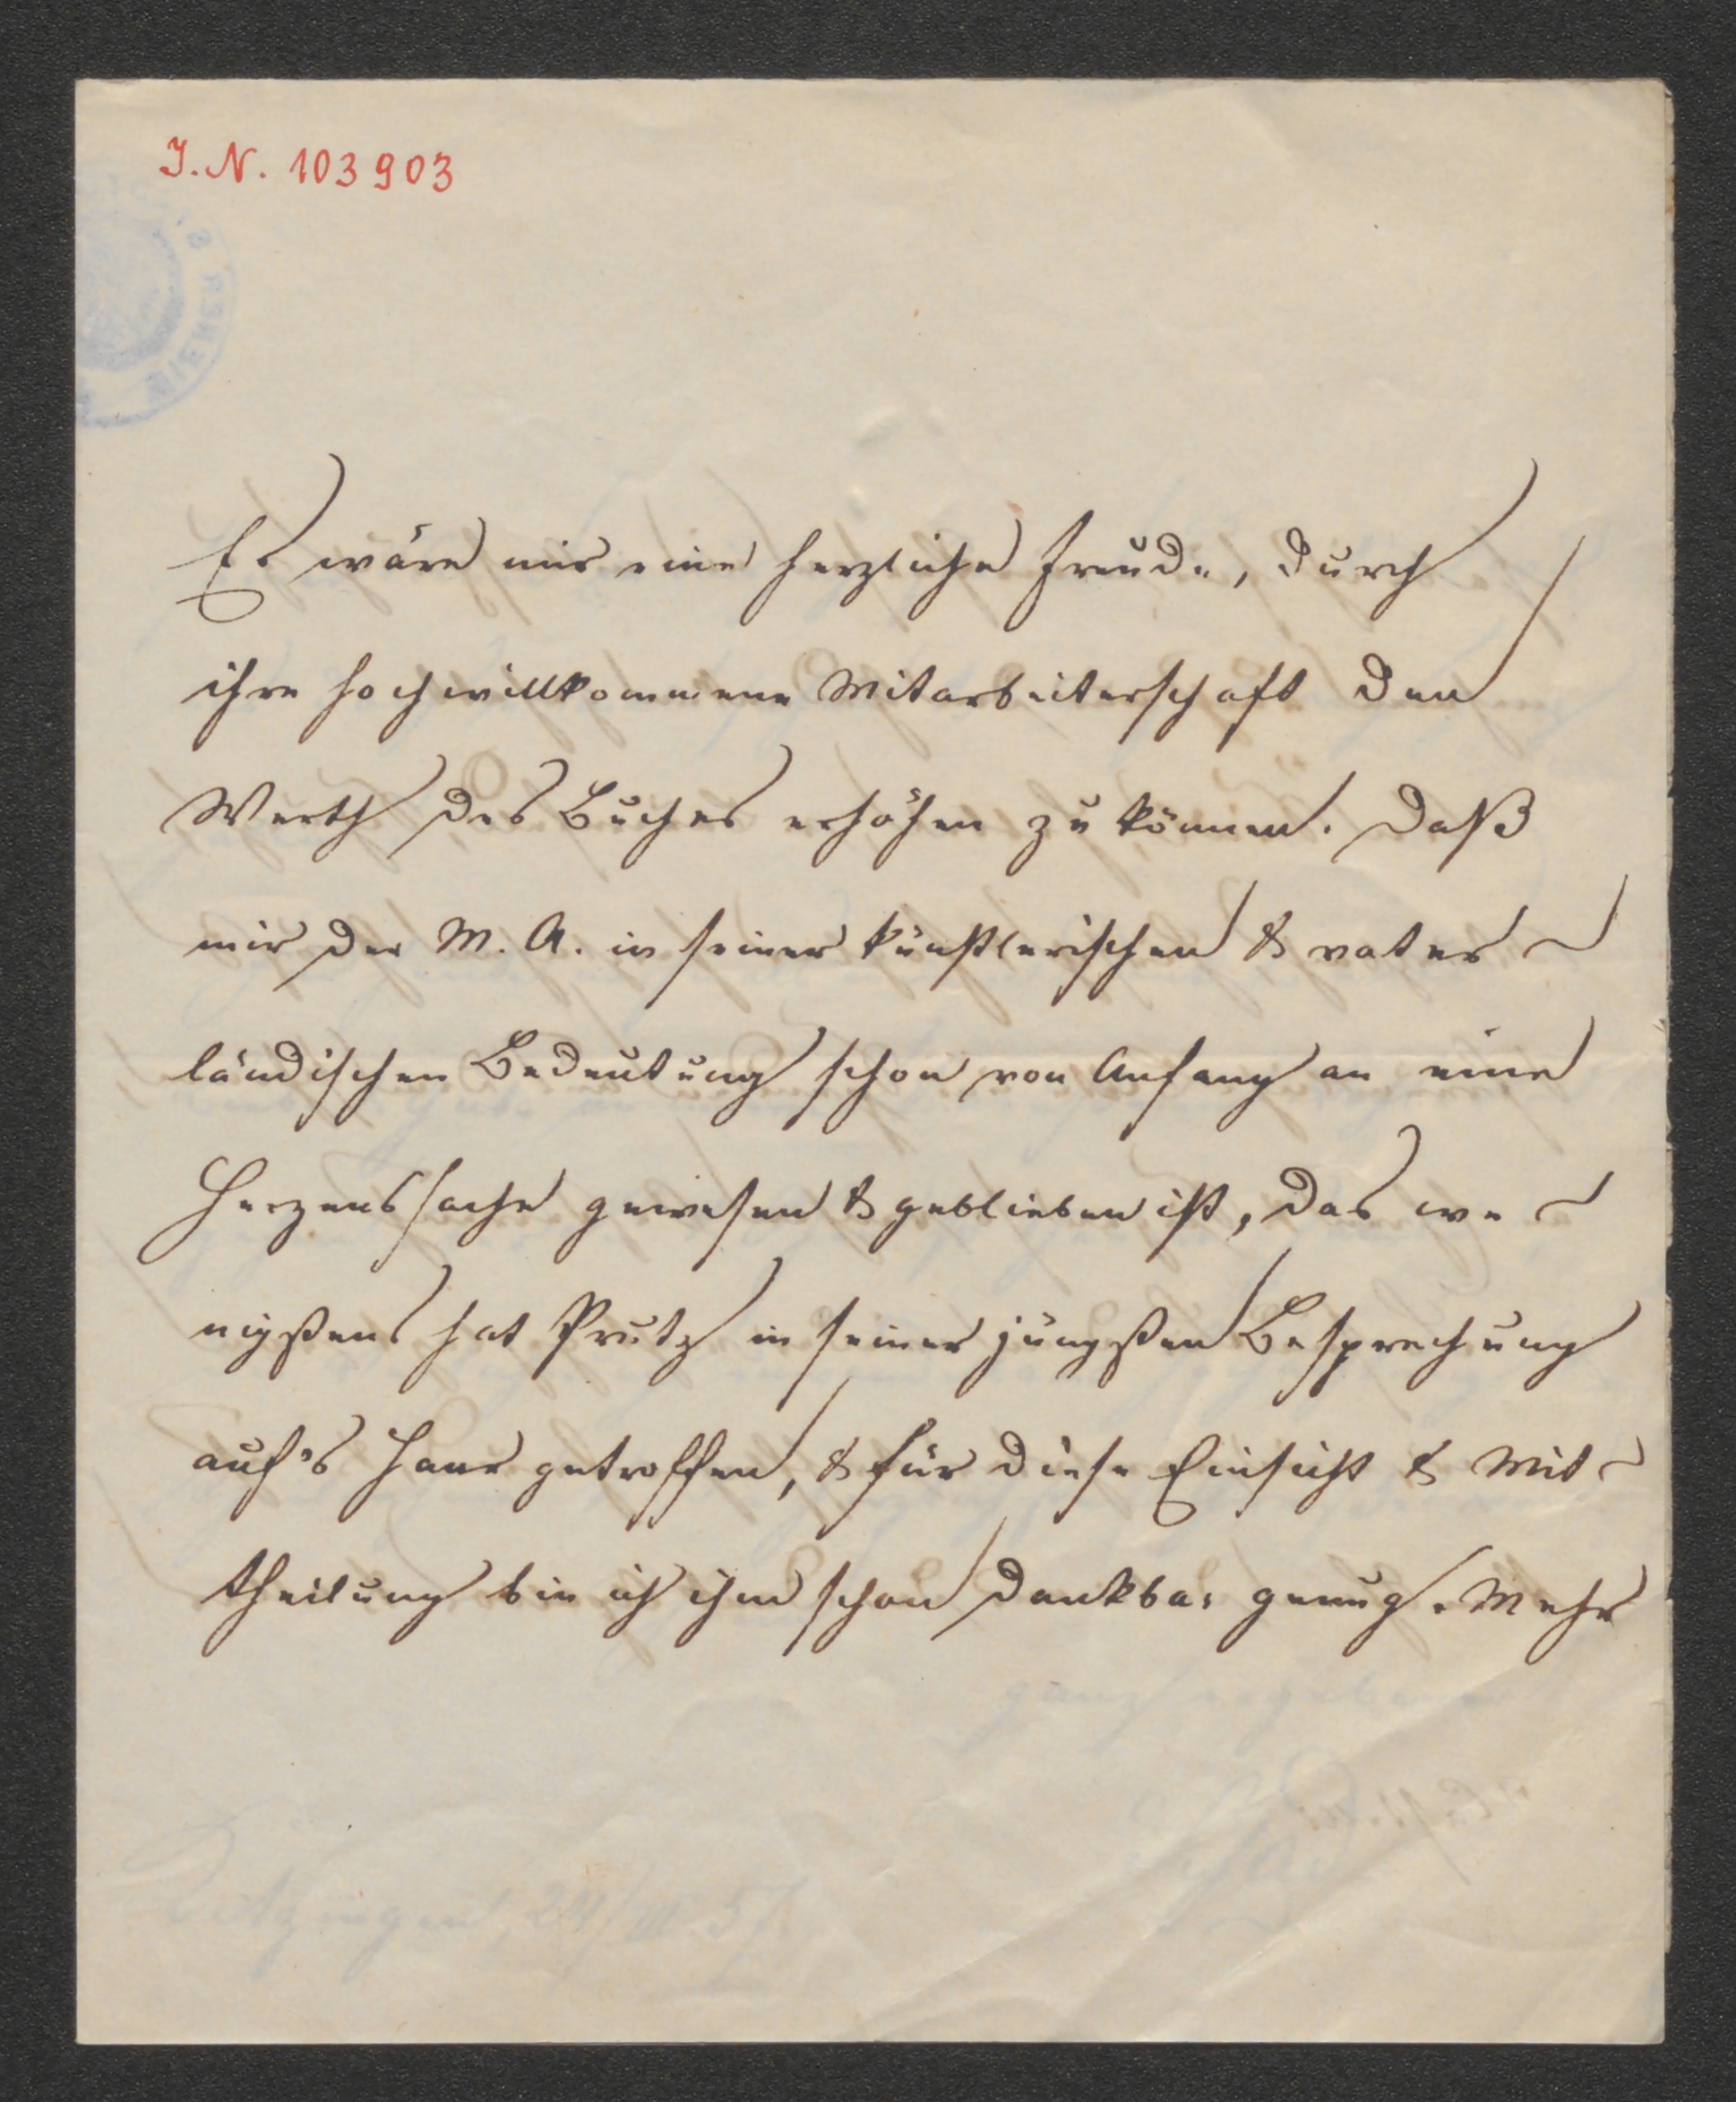 I.N. 103903
WIENER S
Es wäre mir eine herzliche Freude, durch
ihre hochwillkommene Mitarbeiterschaft den
Werth des Buches erhöhen zu können. Daß
mir der M. A. in seiner künstlerischen & vater-
ländischen Bedeutung schon von Anfang an eine
Herzenssache gewesen & geblieben ist, das we-
nigstens hat Prutz in seiner jüngsten Besprechung
auf's Haar getroffen, & für diese Einsicht & Mit-
theilung bin ich ihm schon dankbar genug. Mehr